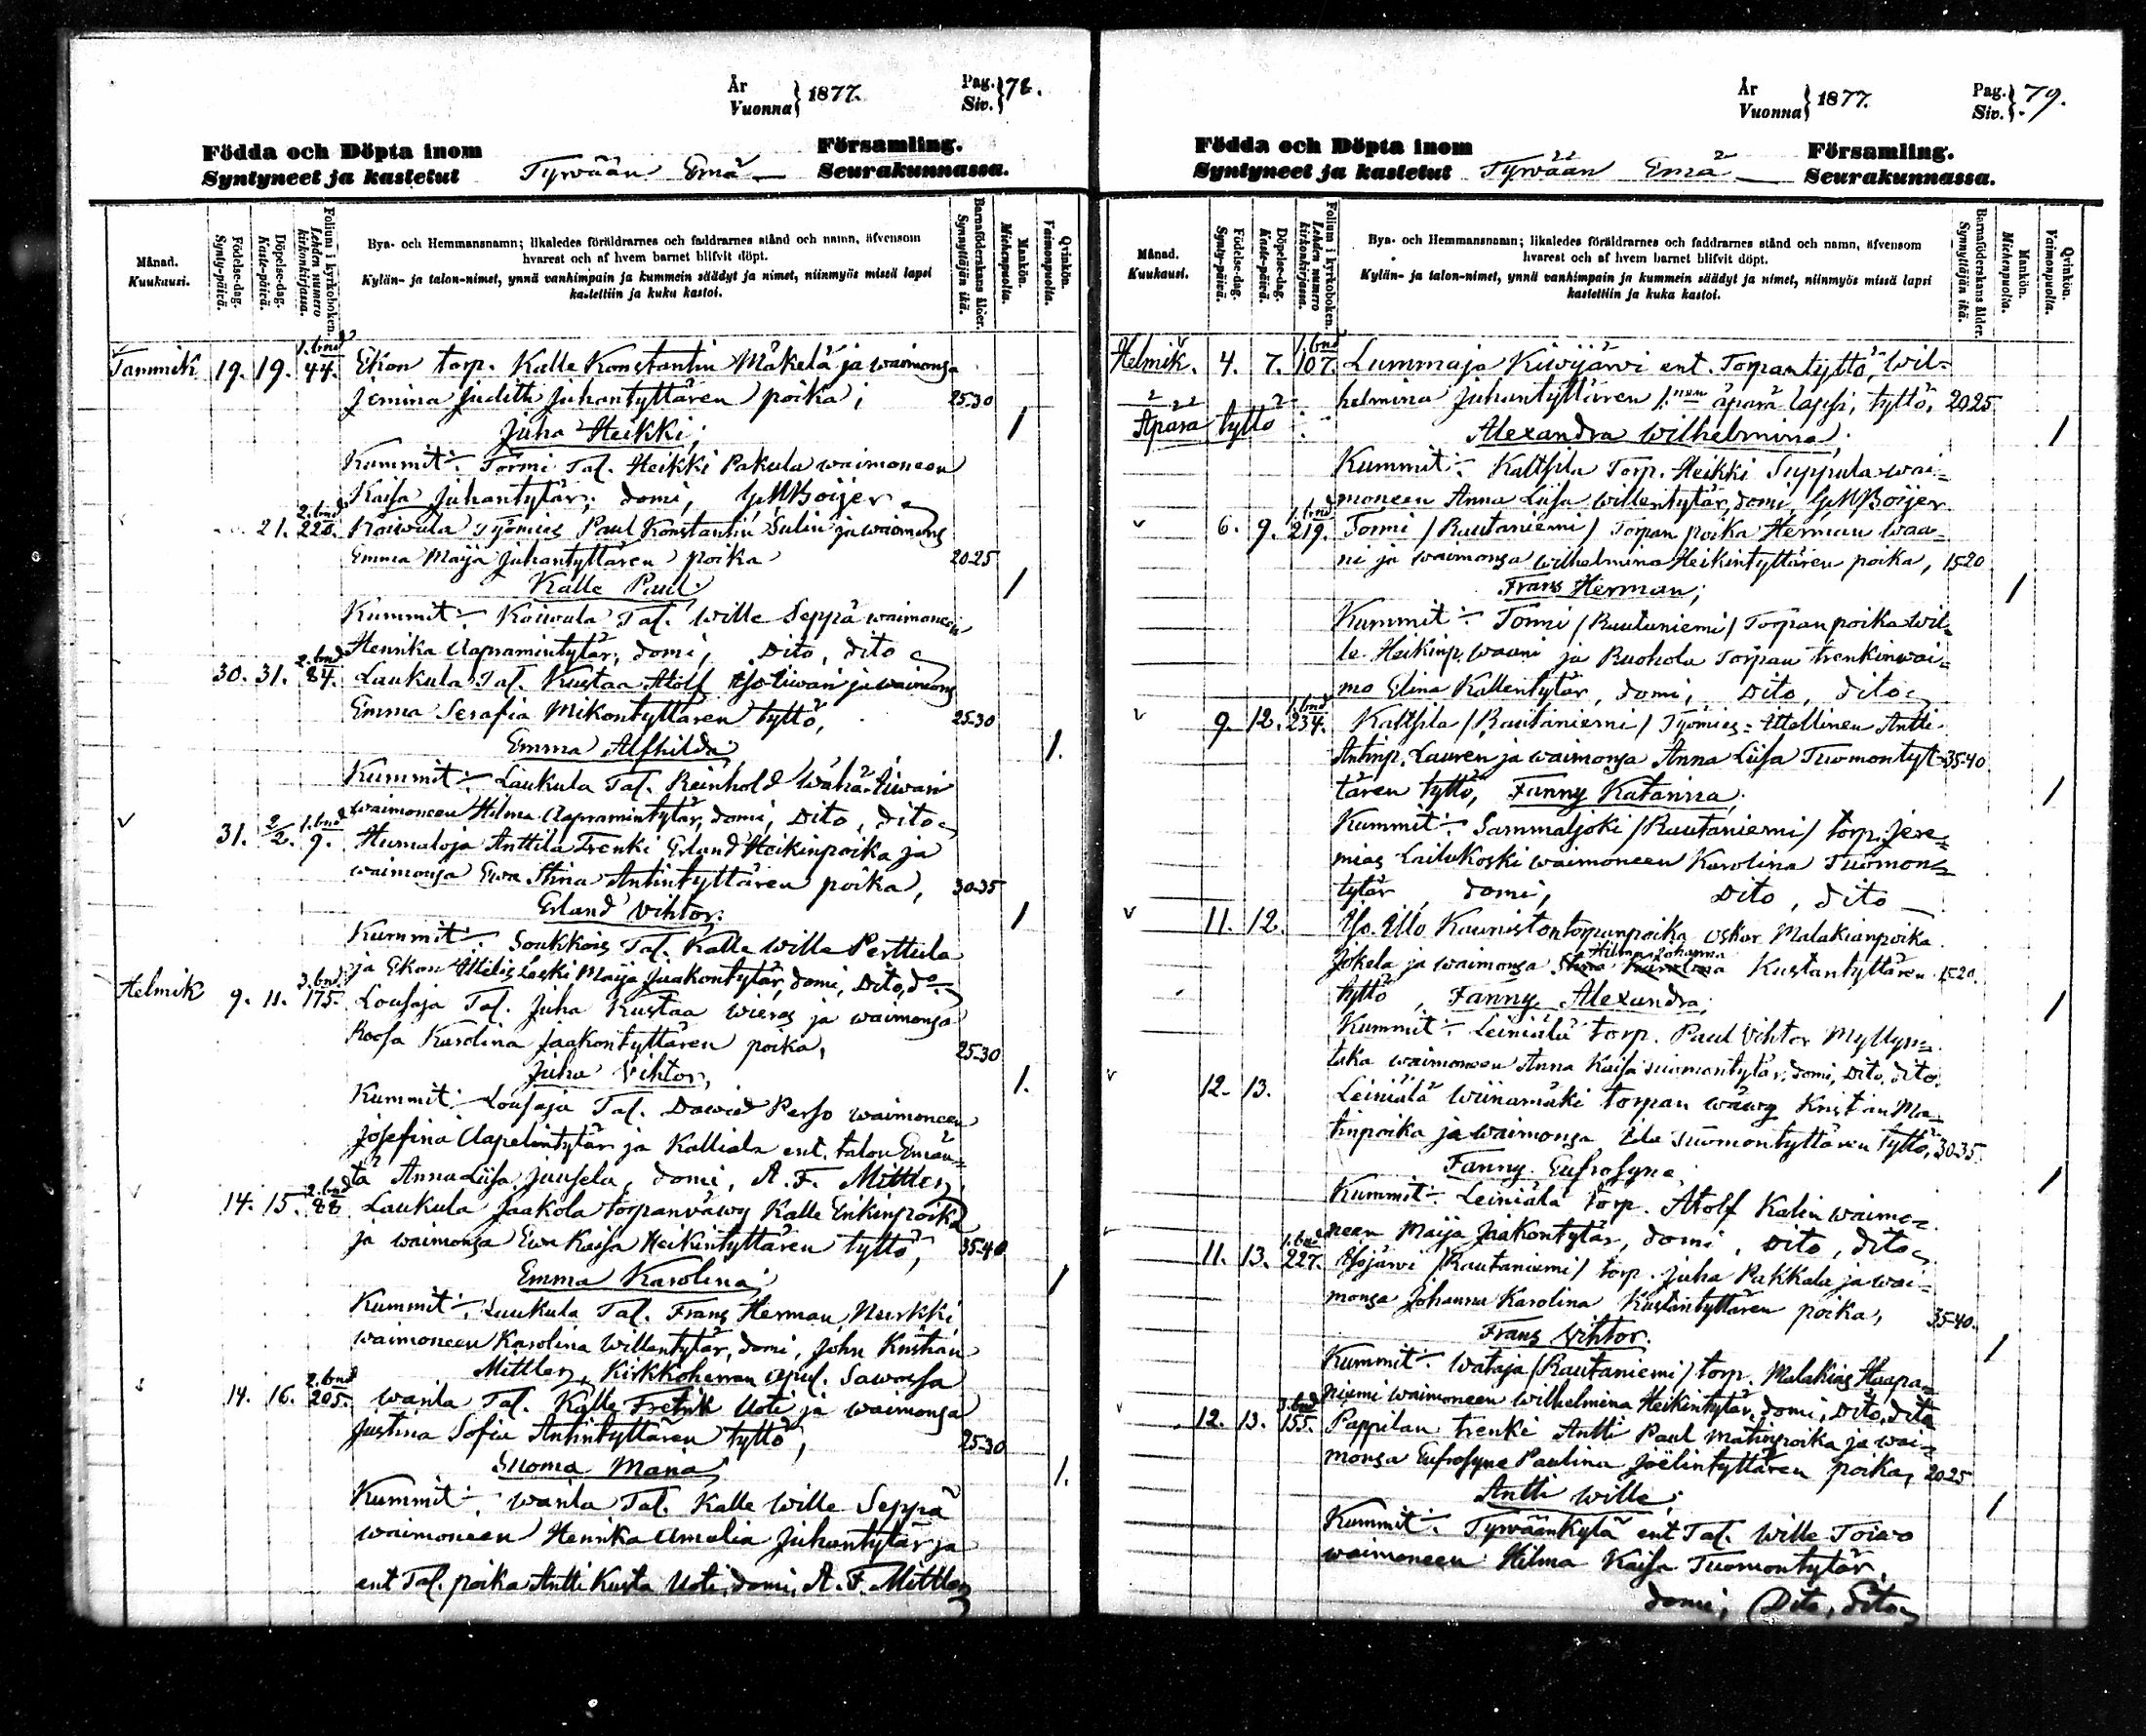 År
Vuonna } 1877.
Pag.
Siv. } 78.
Födda och Döpta inom
Syntyneet ja kastetut
Tyrvään Emä
Församling.
Seurakunnassa.
Månad.
Kuukausi.
Födelse-dag.
Synty-päivä.
Döpelse-dag.
Kaste-päivä.
Folium i kyrkoboken.
Lehden numero kirkonkirjassa.
Bya- och Hemmansnamn; likaledes föräldrarnes och faddrarnes stånd och namn, äfvensom
hvarest och af hvem barnet blifvit döpt.
Kylän- ja talon-nimet, ynnä vanhimpain ja kummein säädyt ja nimet, niinmyös missä lapsi
kastettiin ja kuka kastoi.
Barnaföderskans ålder.
Synnyttäjän ikä.
Mankön.
Miehenpuolia.
Qvinkön.
Vaimonpuolia.
Tammik 19. 19. 1. bnd 44. Ekon torp. Kalle Konstantin Mäkelä ja waimonsa
Jemina Judith Juhantyttären poika; 25-30
Juha Heikki; 1
Kummit: Tormi Tal. Heikki Pakula waimoneen
Kaisa Juhantytär; domi, G. W. Boijer
21. 2. bnd 220. Koiwula Työmies Paul Konstantin Sulin ja waimons
Emma Maija Juhantyttären poika 20-25
Kalle Paul 1
Kummit: Koiwula Tal. Wille Seppä waimoneen
Henrika Aapramintytär, domi, Dito, dito
30. 31. 2. bnd 84. Laukula Tal. Kustaa Atolf Iso tiwari ja waimons
Emma Serafia Mikontyttären tyttö, 25-30
Emma Alfhilda 1.
Kummit: Laukula Tal. Reinhold Wähä-tiwari
waimoneen Hilma Aapramintytär, domi, Dito, dito
31. 2/2. 1. bnd 9. Humaloja Anttila Trenki Erland Heikinpoika ja
waimonsa Ewa Stina Antintyttären poika, 30-35
Erland Vihtor. 1
Kummit: Soukkois Tal. Kalle Wille Perttula
ja Ekon Itellis Leski Maija Jaakontytär, domi, Dito, do
Helmik 9. 11. 3. bnd 175. Lousaja Tal. Juha Kustaa Wieras ja waimonsa
Roosa Karolina Jaakontyttären poika, 25-30
Juha Vihtor, 1.
Kummit: Lousaja Tal. Dawid Perso waimoneen
Josefina Aapelintytär ja Kalliala ent. talon Emän-
tä Anna Liisa Juusela, domi, A. F. Mittler,
14. 15. 2. bnd 88 Laukula Jaakola torpanväwy Kalle Erikinpoika
ja waimonsa Ewa Kaisa Heikintyttären tyttö, 35-40
Emma Karolina; 1
Kummit: Laukula Tal. Frans Herman Nurkki
waimoneen Karolina Willentytär, domi, John Kristian
Mittler, Kirkkoherran apul. Sawossa
14. 16. 2. bnd 205. Warila Tal. Kalle Fretrik Uoti ja waimonsa
Justina Sofia Antintyttären tyttö, 25-30
Suoma Maria 1.
Kummit: Warila Tal. Kalle Wille Seppä
waimoneen Henrika Amalia Juhantytär ja
ent Tal. poika Antti Kusta Uoti, domi, A. F. Mittler
År
Vuonna } 1877.
Pag.
Siv. } 79.
Födda och Döpta inom
Syntyneet ja kastetut
Tyrvään Emä
Församling.
Seurakunnassa.
Månad.
Kuukausi.
Födelse-dag.
Synty-päivä.
Döpelse-dag.
Kaste-päivä.
Folium i kyrkoboken.
Lehden numero kirkonkirjassa.
Bya- och Hemmansnamn; likaledes föräldrarnes och faddrarnes stånd och namn, äfvensom
hvarest och af hvem barnet blifvit döpt.
Kylän- ja talon-nimet, ynnä vanhimpain ja kummein säädyt ja nimet, niinmyös missä lapsi
kastettiin ja kuka kastoi.
Barnaföderskans ålder.
Synnyttäjän ikä.
Mankön.
Miehenpuolia.
Qvinkön.
Vaimonpuolia.
Helmik. 4. 7. 1. bnd 107. Lummaja Kiwijärwi ent. Torpantyttö, Wil-
helmina Juhantyttären 1:nen äpärä lapsi, tyttö, 20-25
Äpärä tyttö Alexandra Wilhelmina; 1
Kummit: Kaltsila Torp. Heikki Suppula wai-
moneen Anna Liisa Willentytär, domi, G. W. Boijer
6. 9. 1. bnd 219. Tormi /Rautaniemi/ Torpan poika Herman Waa-
ni ja waimonsa Wilhelmina Heikintyttären poika, 15-20
Frans Herman; 1
Kummit: Tormi /Rautaniemi/ Torpan poika Wil-
le Heikinp. Waani ja Ruohola Torpan trenkinwai-
mo Elina Kallentytär, domi, Dito, dito
9. 12. 1. bnd 234. Kaltsila /Rautaniemi/ Työmies-Itellinen Antti
Antinp. Lauren ja waimonsa Anna Liisa Tuomontyt- 35-40
tären tyttö, Fanny Katarina; 1
Kummit: Sammaljoki /Rautaniemi/ torp. Jere-
mias Lailukoski waimoneen Karolina Tuomon-
tytär, domi, Dito, dito
11. 12. Iso Illo Kauniston torpanpoika Oskar Malakianpoika
Hilma Johanna
Jokela ja waimonsa Stina Karolina Kustantyttären 15-20.
tyttö, Fanny Alexandra; 1
Kummit: Leiniälä torp. Paul Vihtor Myllyn-
taka waimoneen Anna Kaisa Tuomontytär, domi, Dito, dito.
12. 13. Leiniälä Wiinamäki torpan wäwy Kristian Ma-
tinpoika ja waimonsa Eda Tuomontyttären tyttö, 30-35
Fanny Eufrosyne 1
Kummit: Leiniälä torp. Atolf Kalin waimo-
neen Maija Jaakontytär, domi, Dito, dito
11. 13. 1. bnd 227. Isojärwi /Rautaniemi/ torp. Juha Pakkala ja wai-
monsa Johanna Karolina Kustantyttären poika, 35-40.
Frans Vihtor. 1
Kummit: Wataja /Rautaniemi/ torp. Malakias Haapa-
niemi waimoneen Wilhelmina Heikintytär, domi, Dito, dito
12. 13. 3. bnd 155. Pappilan trenki Antti Paul Matinpoika ja wai-
monsa Eufrosyne Paulina Joëlintyttären poika, 20-25
Antti Wille; 1
Kummit: Tyrväänkylä ent Tal. Wille Toiwo
waimoneen Hilma Kaisa Tuomontytär,
domi, Dito, dito